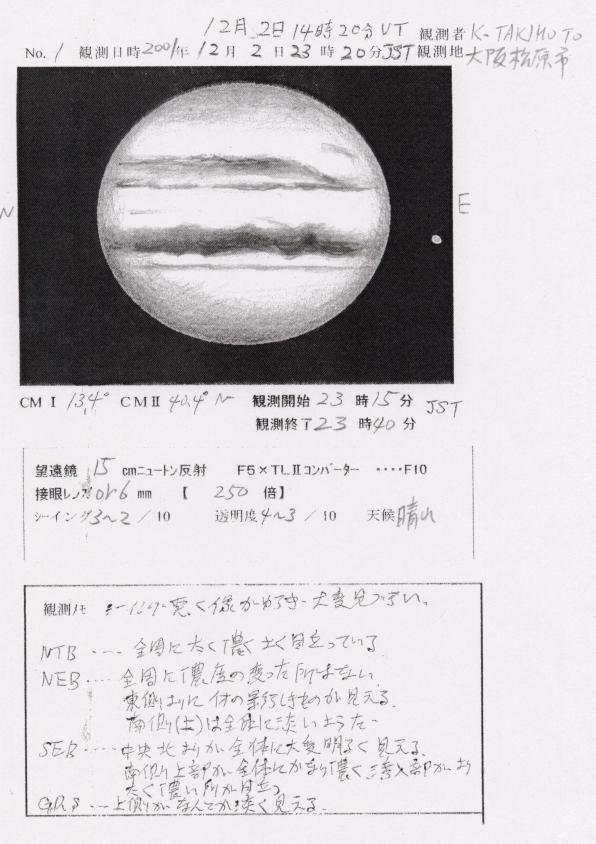 12月2日14時20分UT 観測者 K-TAKIMOTO
No. 1 観測日時 2001年 12月 2日 23時 20分JST 観測地 大阪松原市
N E
CM I 13.4° CM II 40.4° 観測開始 23時15分 JST
観測終了 23時40分
望遠鏡 15 cmニュートン反射 F5×TLⅡコンバーター ‥‥F10
接眼レンズ or6 mm 【 250 倍】
シーイング 3~2 / 10 透明度 4~3 / 10 天候 晴
観測メモ 悪く像が 大変見づらい。
NTB ‥‥ 全周に太く濃く 目立っている
NEB ‥‥ 全周に濃度の変った所はない
東側 に 見える。
南側(上)は全体に淡いようだ
SEB ‥‥ 中央北よりが全体に大変明るく見える。
南側上部が全体にかなり濃く 部があり
太く濃い所が目立つ
GRS ‥‥ 上側が 淡く見える。